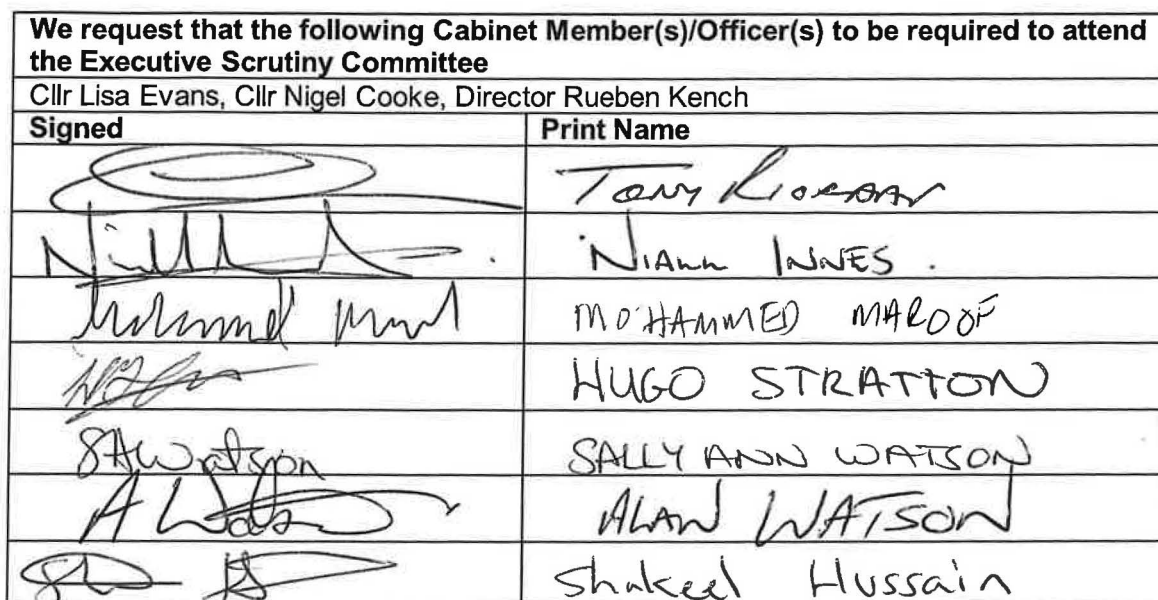 We request that the following Cabinet Member(s)/Officer(s) to be required to attend
the Executive Scrutiny Committee
Cllr Lisa Evans, Cllr Nigel Cooke, Director Rueben Kench
Signed Print Name
Tony Riordan
Niall INNES.
MOHAMMED MAROOF
HUGO STRATTON
SAWatson SALLY ANN WATSON
A Watson ALAN WATSON
Shakeel Hussain